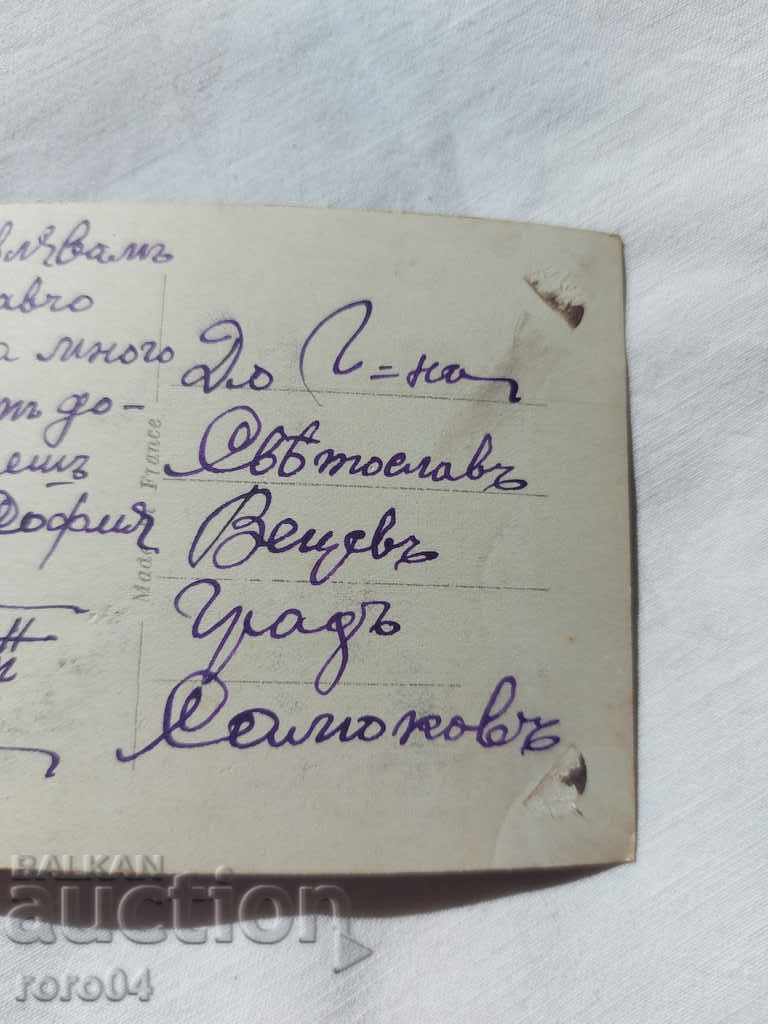 влявамъ
авчо
а много
тъ до-
ешъ
София
До Г=на
Свѣтославъ
Вецовъ
Градъ
Самоковъ
Made France
BALKAN
auction
roro04